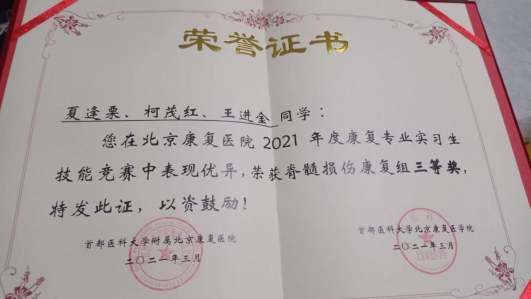 荣誉证书
夏逢栗、柯茂红、王进金同学：
您在北京康复医院2021年度康复专业实习生
技能竞赛中表现优异，荣获脊髓损伤康复组三等奖，
特发此证，以资鼓励！
首都医科大学附属北京康复医院
二〇二一年三月
首都医科大学北京康复医学院
二〇二一年三月